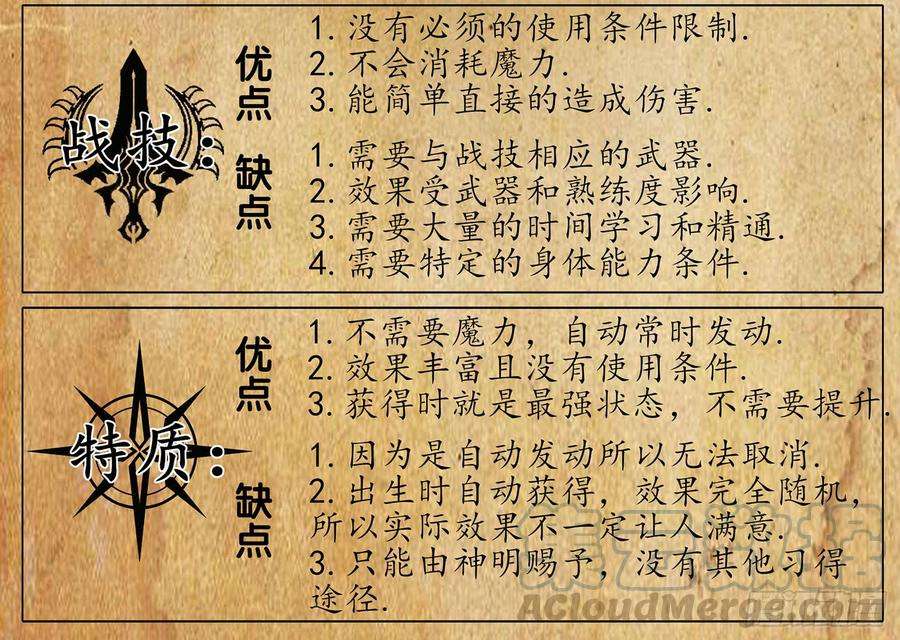 战技：
优点
1. 没有必须的使用条件限制.
2. 不会消耗魔力.
3. 能简单直接的造成伤害.
缺点
1. 需要与战技相应的武器.
2. 效果受武器和熟练度影响.
3. 需要大量的时间学习和精通.
4. 需要特定的身体能力条件.
特质：
优点
1. 不需要魔力，自动常时发动.
2. 效果丰富且没有使用条件.
3. 获得时就是最强状态，不需要提升.
缺点
1. 因为是自动发动所以无法取消.
2. 出生时自动获得，效果完全随机，
所以实际效果不一定让人满意.
3. 只能由神明赐予，没有其他习得
途径.
ACloudMerge.com